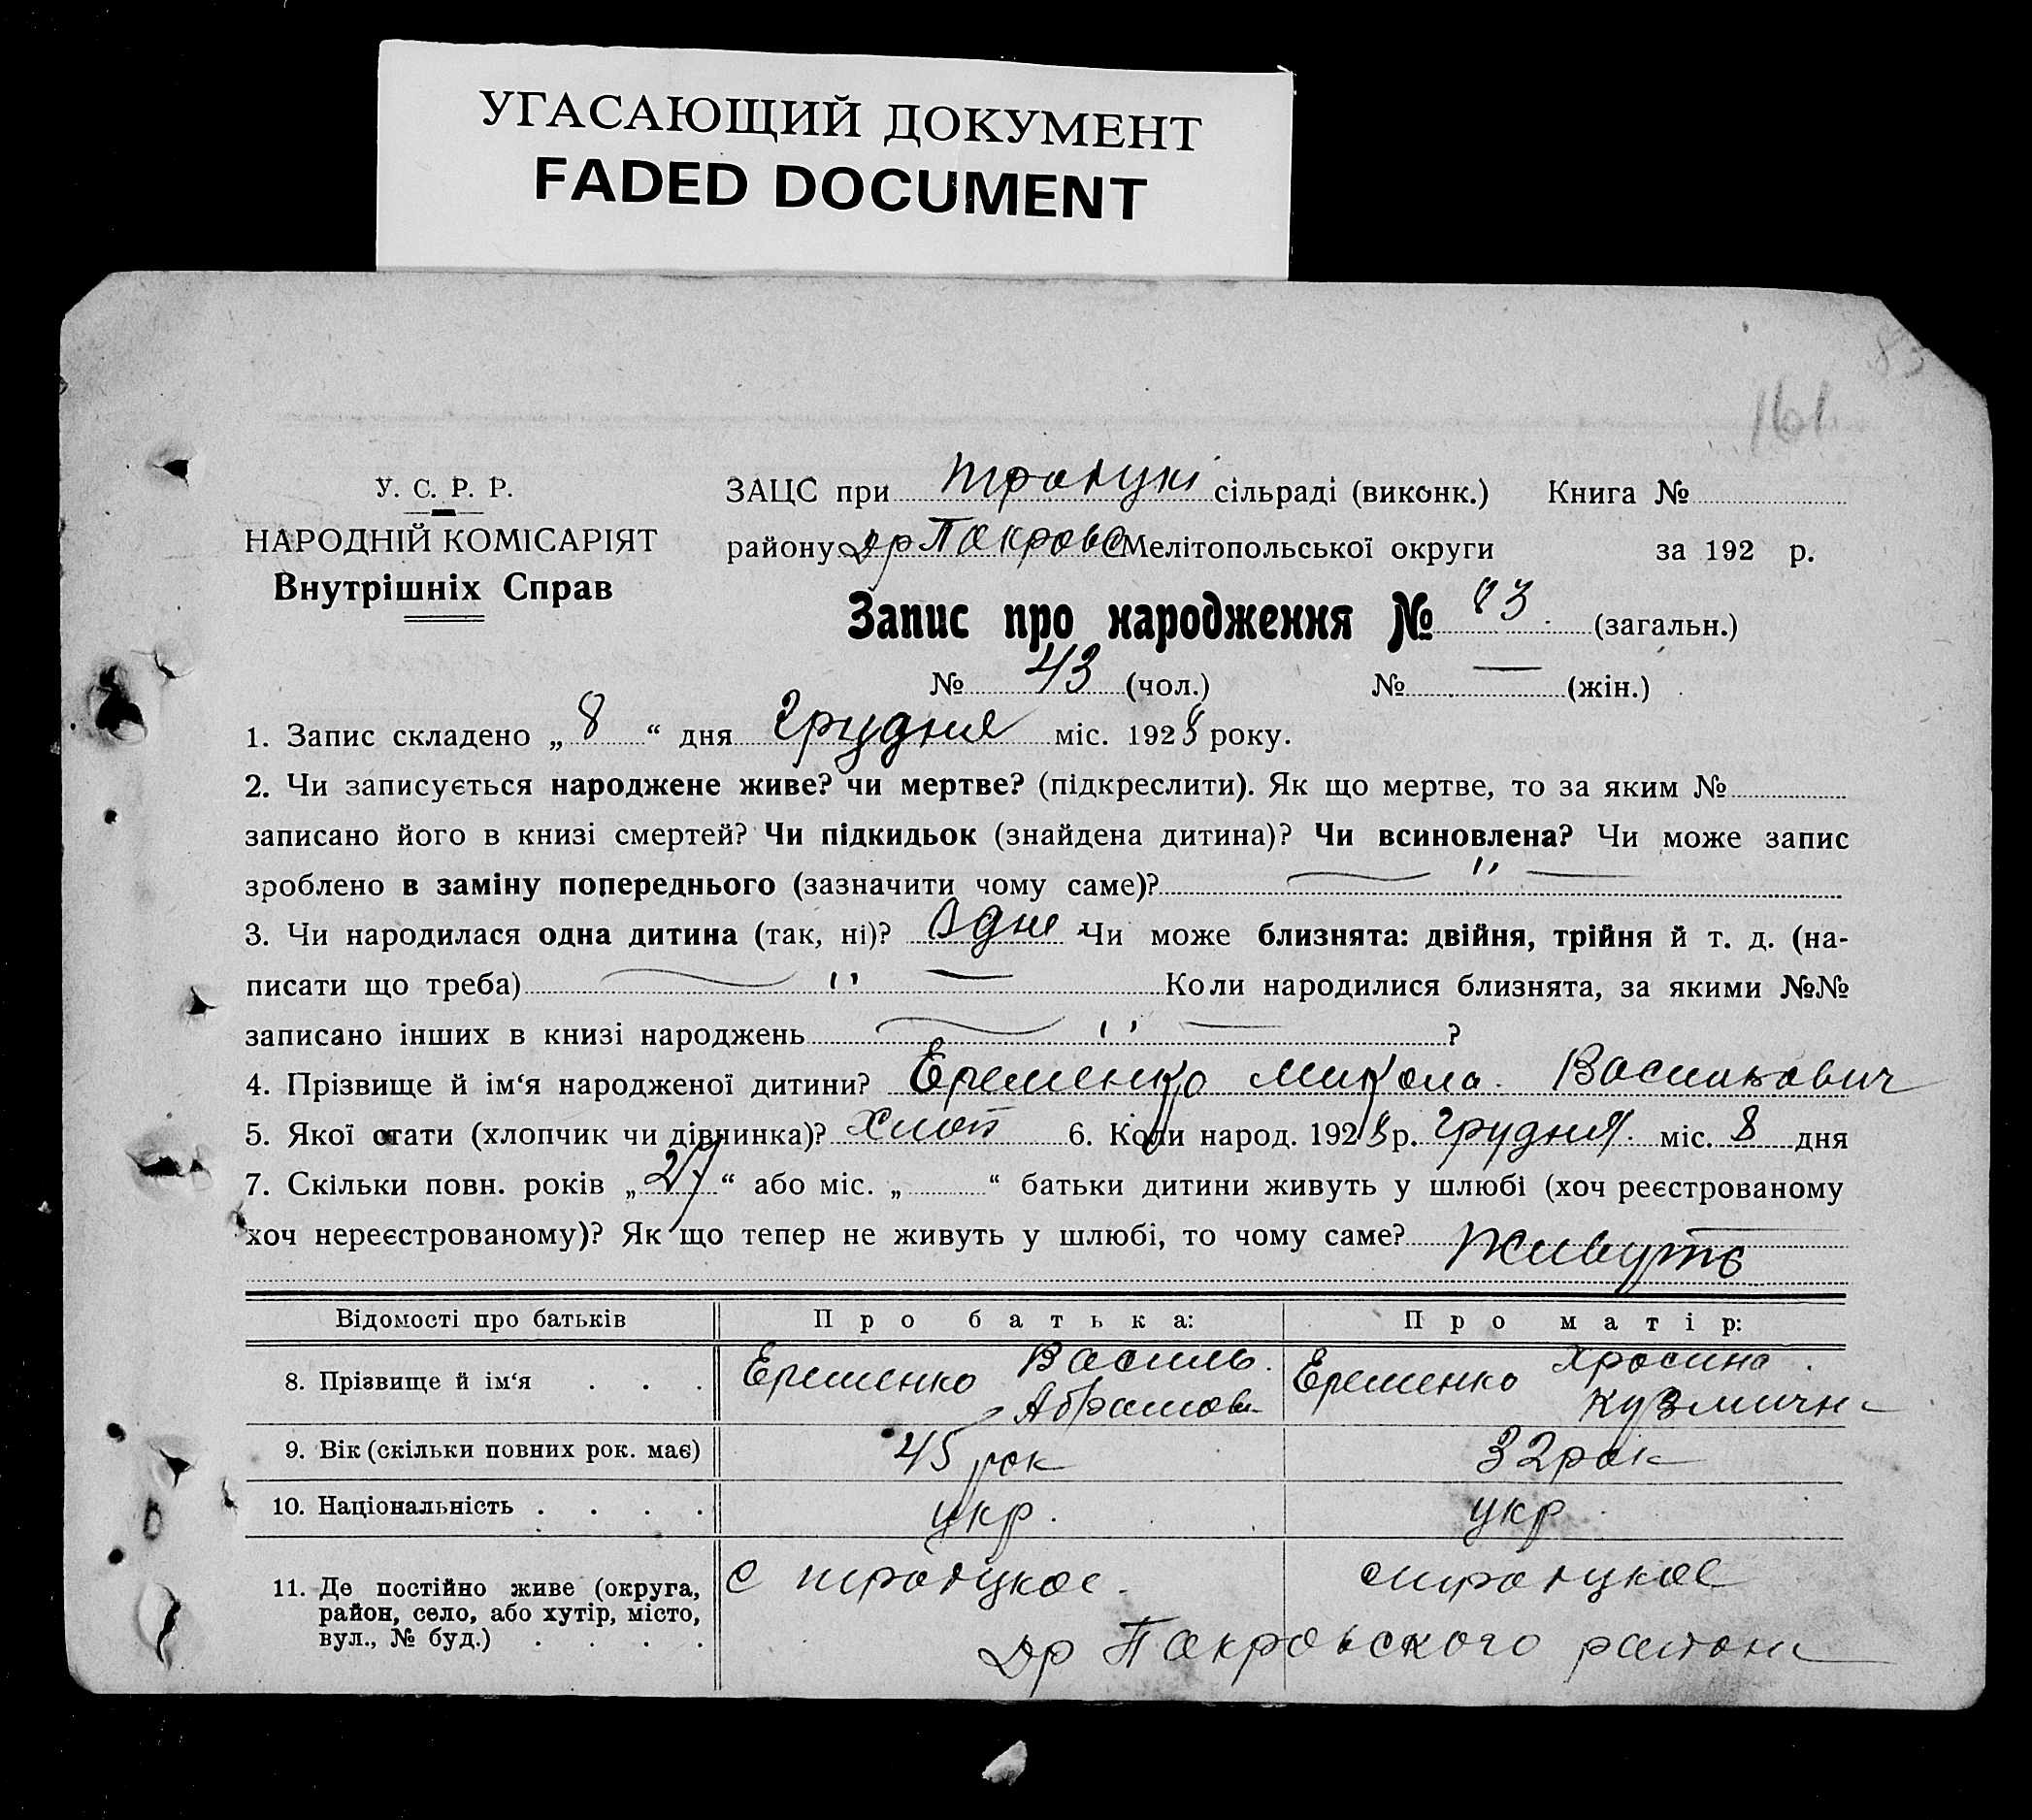 УГАСАЮЩИЙ ДОКУМЕНТ
FADED DOCUMENT
83
161
У. С. Р. Р.
НАРОДНІЙ КОМІСАРІЯТ
Внутрішніх Справ
ЗАЦС при сільраді (виконк.) Книга №
району Мелітопольської округи за 192 р.
Запис про народження № 83 (загальн.)
№ 43 (чол.) № — (жін.)
1. Запис складено „ 8 “ дня грудня міс. 1928 року.
2. Чи записується народжене живе? чи мертве? (підкреслити). Як що мертве, то за яким №
записано його в книзі смертей? Чи підкидьок (знайдена дитина)? Чи всиновлена? Чи може запис
зроблено в заміну попереднього (зазначити чому саме)? — " —
3. Чи народилася одна дитина (так, ні)? Одне Чи може близнята: двійня, трійня й т. д. (на-
писати що треба) — " — Коли народилися близнята, за якими №№
записано інших в книзі народжень — " — ?
4. Прізвище й ім‘я народженої дитини? Еременко Микола Василькович
5. Якої стати (хлопчик чи дівчинка)? Хлоп 6. Коли народ. 1928 р. грудня міс. 8 дня
7. Скільки повн. років „ 27 “ або міс. „ “ батьки дитини живуть у шлюбі (хоч реєстрованому
хоч нереєстрованому)? Як що тепер не живуть у шлюбі, то чому саме? Живуть
Відомості про батьків Про батька: Про матір:
8. Прізвище й ім‘я . . . Еременко Василь Абрамов Еременко Хросина Кузмичн
9. Вік (скільки повних рок. має) 45 рок 32 рок
10. Національність . . . . укр. укр.
11. Де постійно живе (округа,
район, село, або хутір, місто,
вул., № буд.) . . . .
с
Др Пакровского район